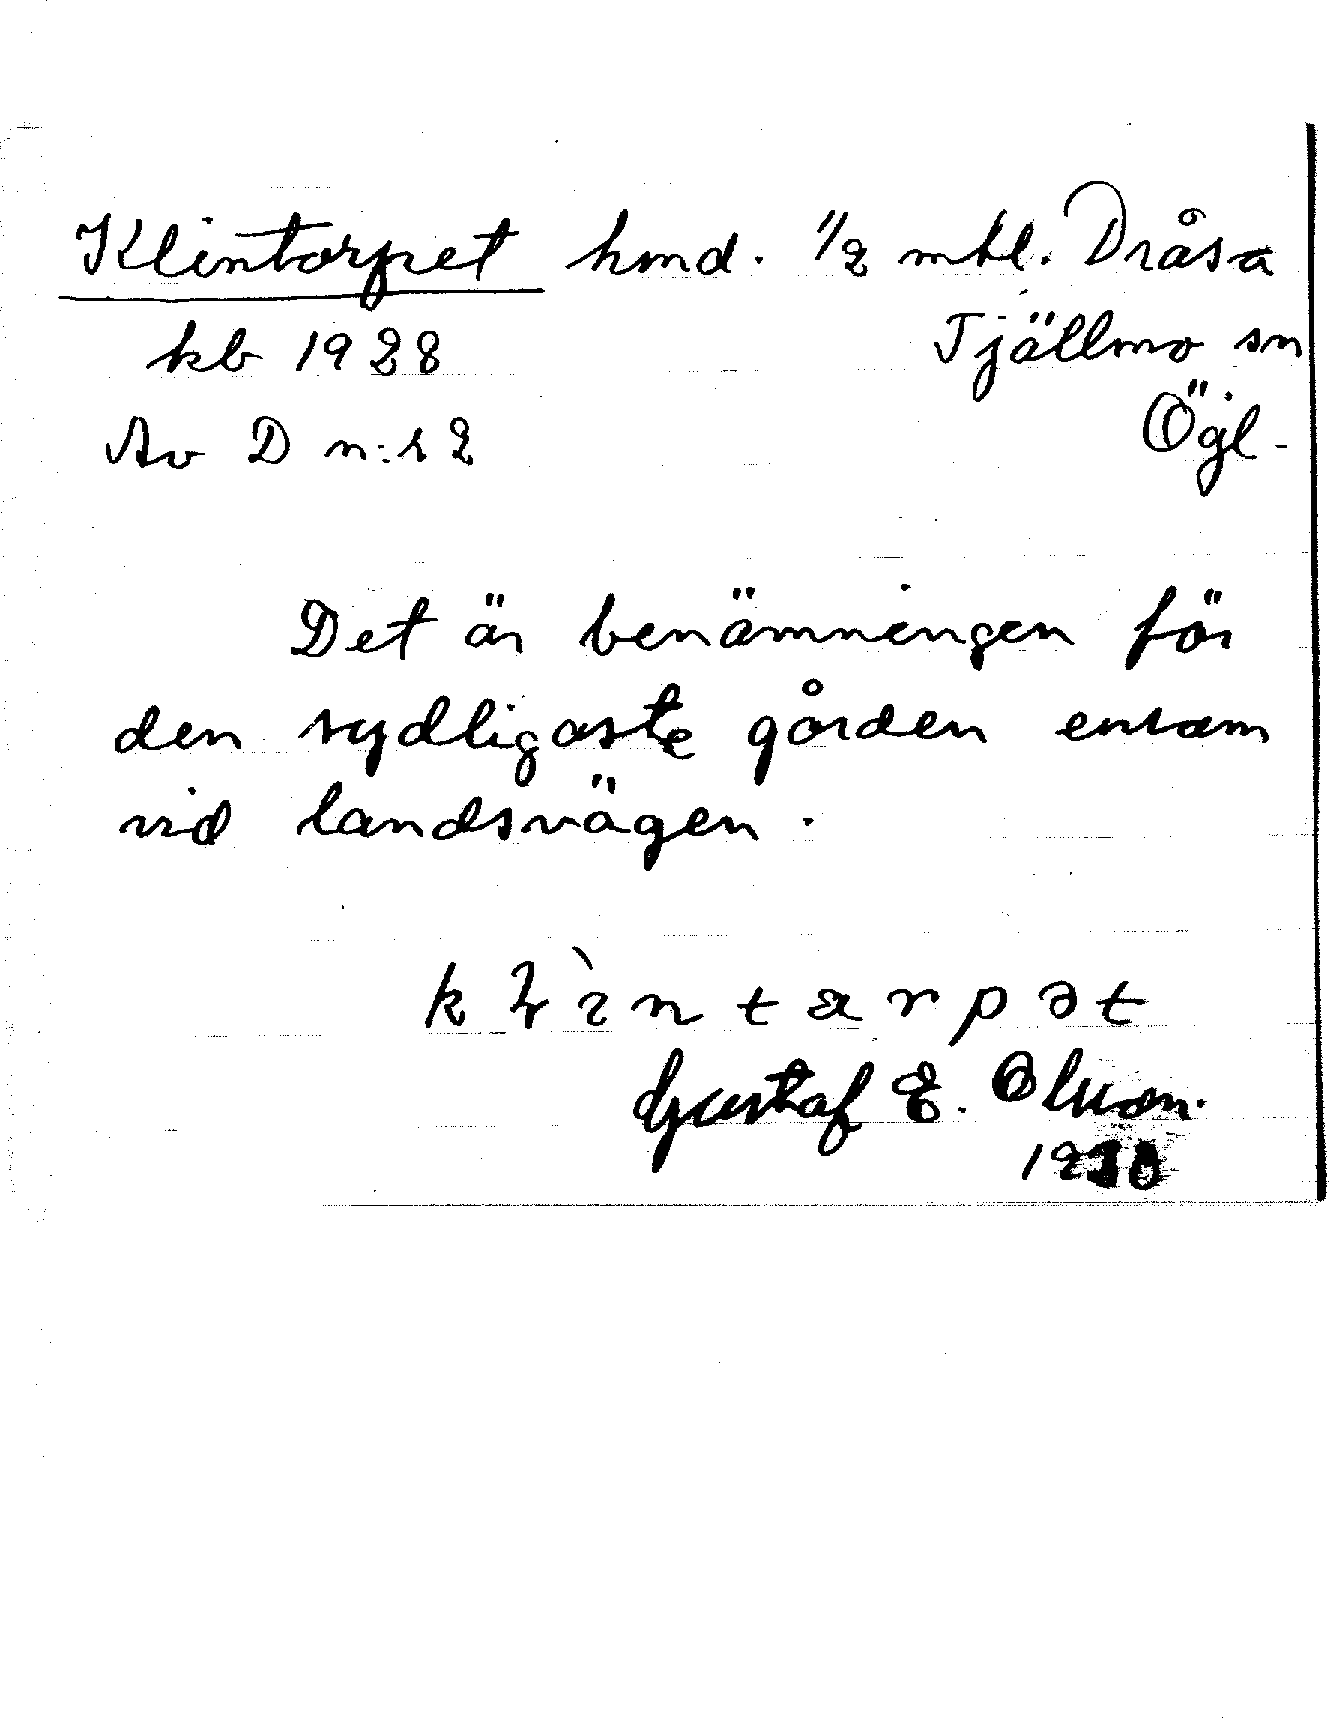 Klintorpet hmd. 1/2 mtl. Dråsa
kb 1928 Tjällmo sn
Av D n:r 2 Ögl.
Det är benämningen för
den sydligaste gården ensam
vid landsvägen.
Gustaf E. Olsson.